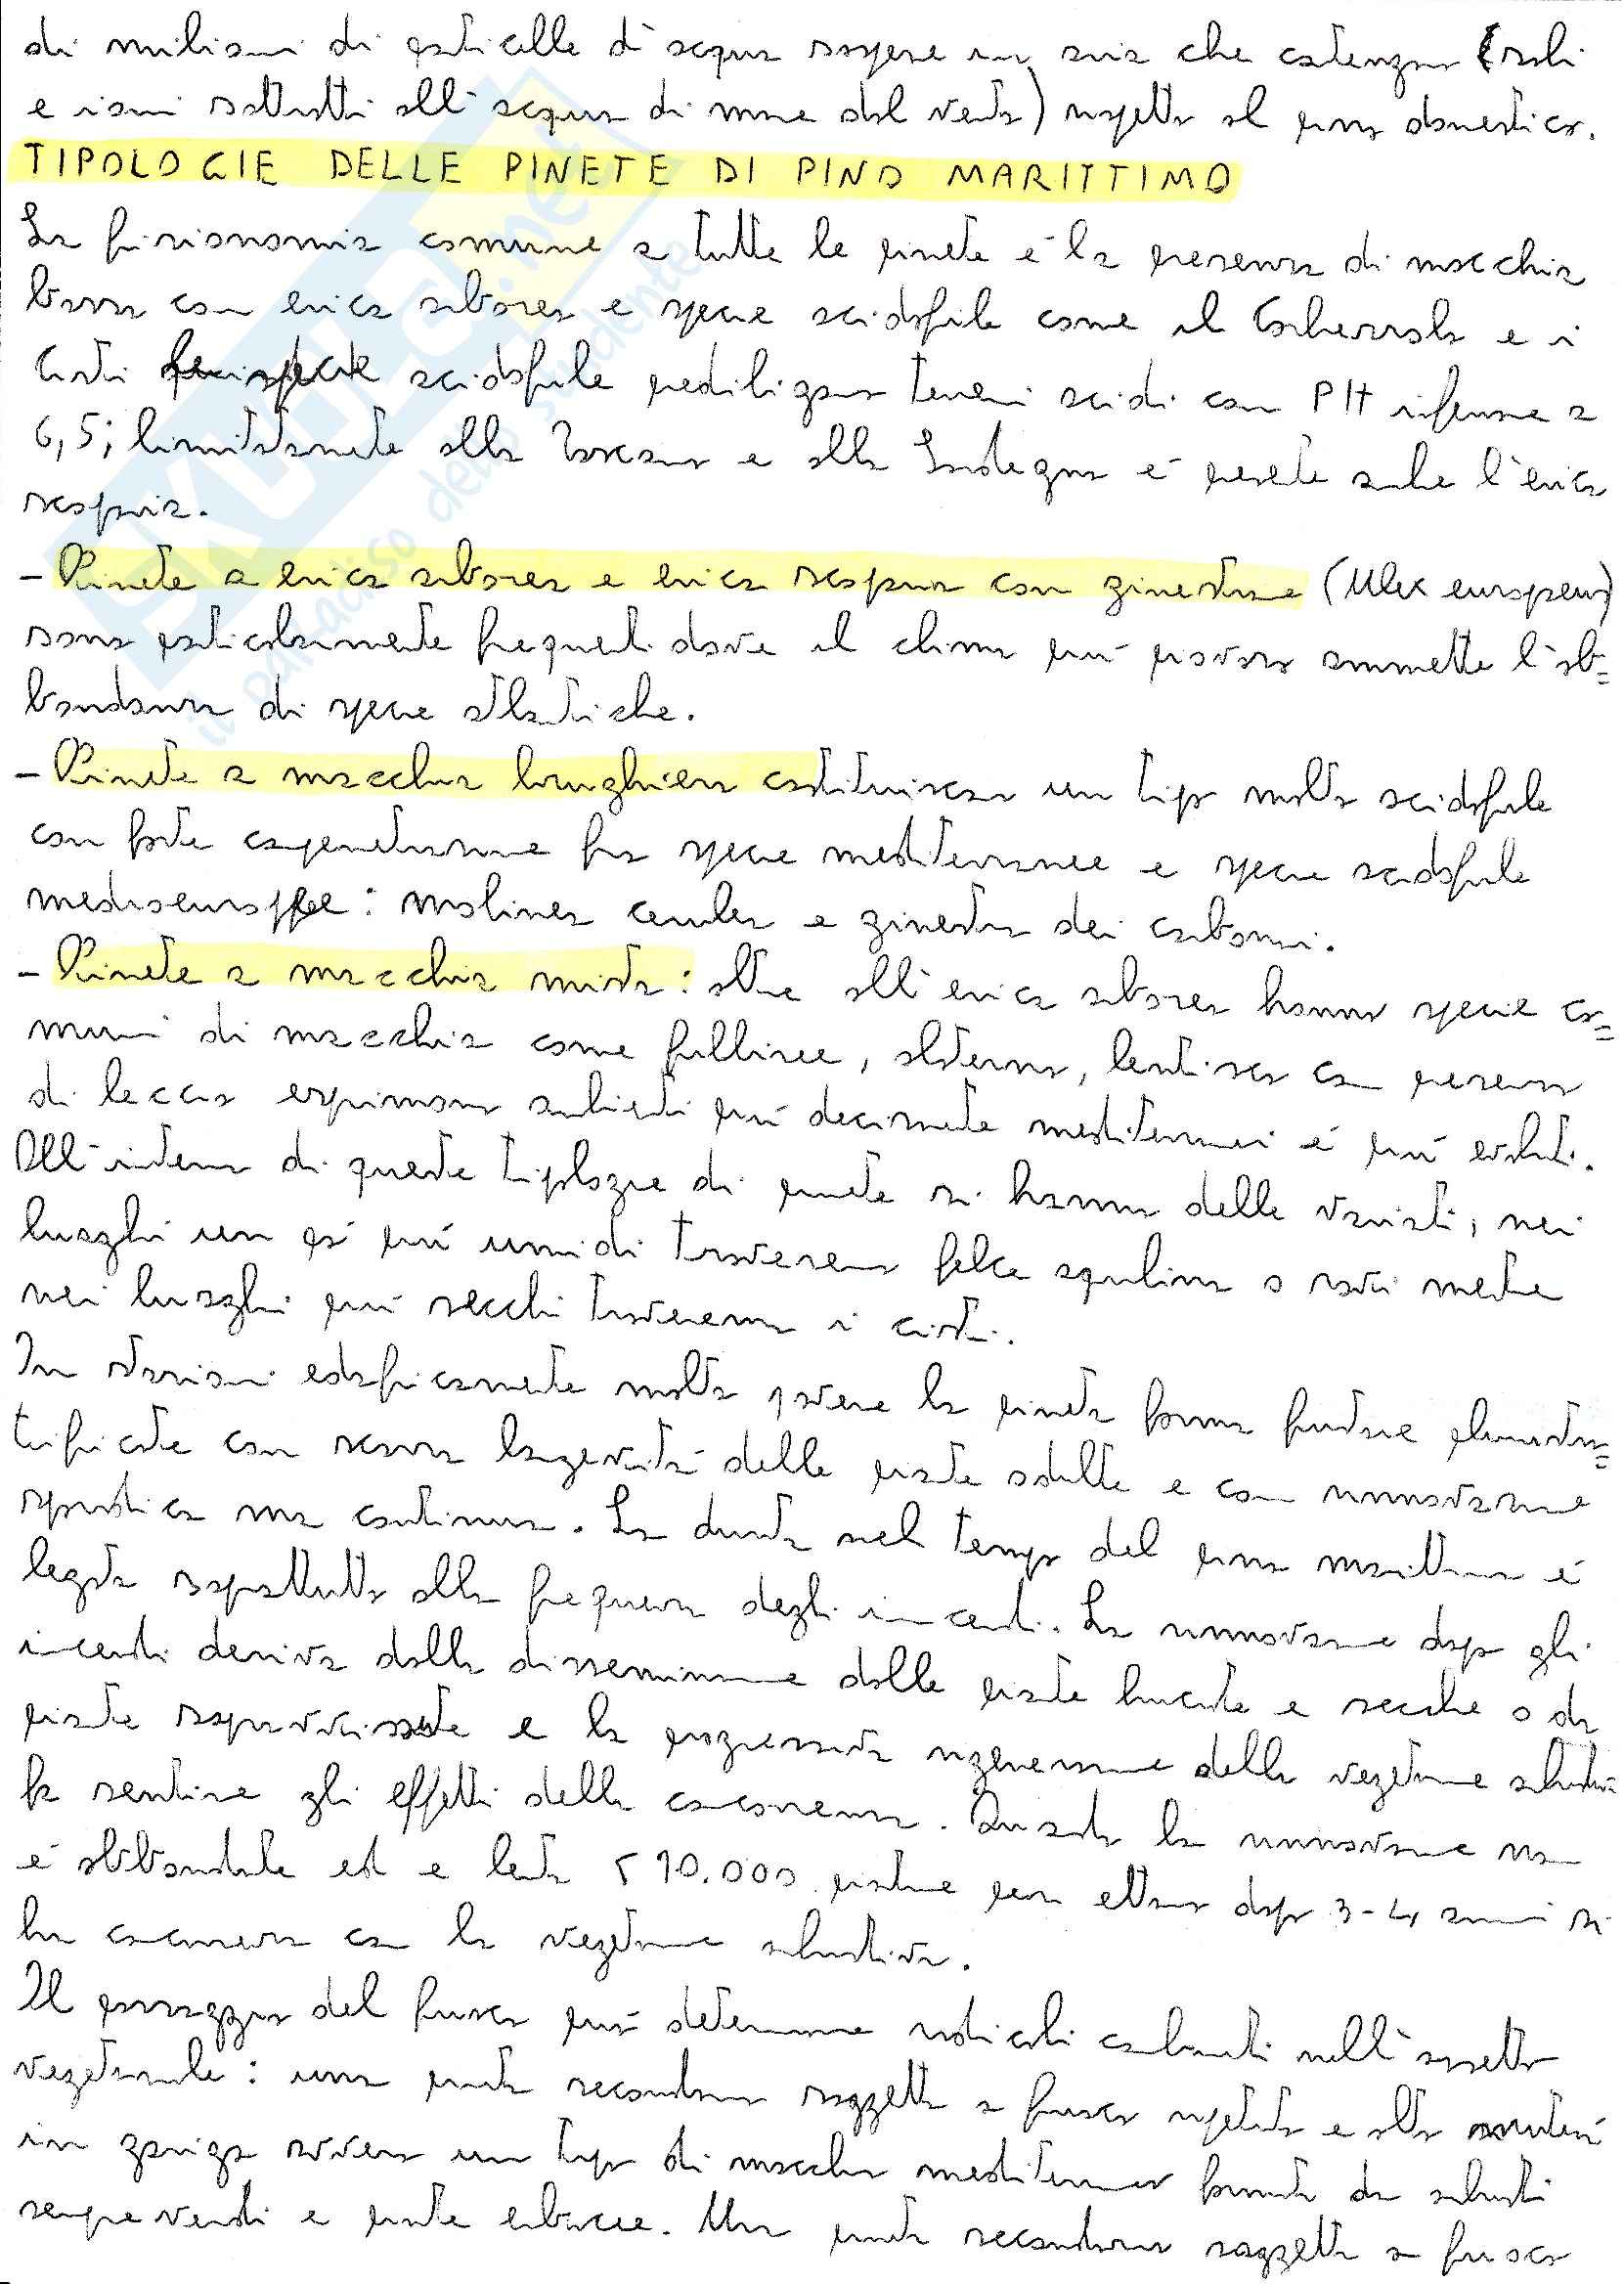 di milioni di particelle d'acqua sospese in aria che contengono (sali
e ioni sottratti all'acqua di mare dal vento) rispetto al pino domestico.
TIPOLOGIE DELLE PINETE DI PINO MARITTIMO
La fisionomia comune a tutte le pinete è la presenza di macchia
bassa con erica arborea e specie acidofile come il Corbezzolo e i
Cisti acidofile prediligono terreni acidi con PH inferiore a
6,5; limitatamente alla Toscana e alla Sardegna è presente anche l'erica
scoparia.
- Pinete a erica arborea e erica scoparia con ginestrone (Ulex europeus)
sono particolarmente frequenti dove il clima più piovoso ammette l'ab=
bondanza di specie atlantiche.
- Pinete a macchia brughiera costituiscono un tipo molto acidofile
con forte compenetrazione fra specie mediterranee e specie acidofile
medioeuropee: molinea cerulea e ginestra dei carbonai.
- Pinete a macchia mista: oltre all'erica arborea hanno specie co=
muni di macchia come filliree, alaterno, lentisco con presenza
di leccio esprimono ambienti più decisamente mediterranei è più evoluti.
All'interno di queste tipologie di pinete si hanno delle varianti, nei
luoghi un pò più umidi troveremo felce aquilina o rovi mentre
nei luoghi più secchi troveremo i cisti.
In stazioni edaficamente molto povere la pineta forma fustaie pluristra=
tificate con scarsa longevità delle piante adulte e con rinnovazione
sporadica ma continua. La durata nel tempo del pino marittimo è
legata soprattutto alla frequenza degli incendi. La rinnovazione dopo gli
incendi deriva dalla disseminazione dalle piante bruciate e secche o da
piante sopravvissute e la progressiva rigenerazione della vegetazione arbustiva
fa sentire gli effetti della concorrenza. Quando la rinnovazione non
è abbondante ed e lenta < 10.000 piantine per ettaro dopo 3-4 anni si
ha concorrenza con la vegetazione arbustiva.
Il passaggio del fuoco può determinare radicali cambiamenti nell'assetto
vegetazionale: una pineta secondaria soggetta a fuoco ripetuto e alto
in gariga ovvero un tipo di macchia mediterranea formata da arbusti
sempreverdi e piante erbacee. Una pineta secondaria soggetta a fuoco
il paradiso dello studente